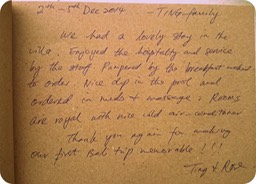 2nd - 5th Dec 2014 TING family
We had a lovely stay in the
villa. Enjoyed the hospitality and service
by the staff. Pampered by the breakfast maked
to order. Nice dip in the pool and
ordered in meals & massage. Rooms
are royal with nice cold air-conditioner
Thank you again for making
our first Bali trip memorable!!!
Ting &